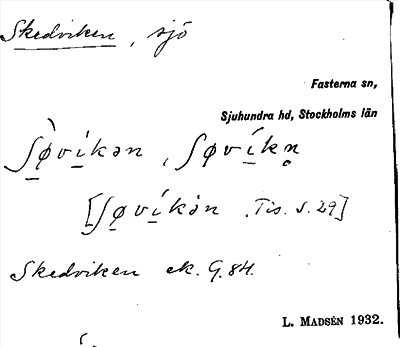 Skedviken, sjö
Fasterna sn,
Sjuhundra hd, Stockholms län
ʃø̀víkən, ʃøvíkn̥
[ʃøvíkən Tis. s. 29]
Skedviken ek. G. 84.
L. MADSÉN 1932.